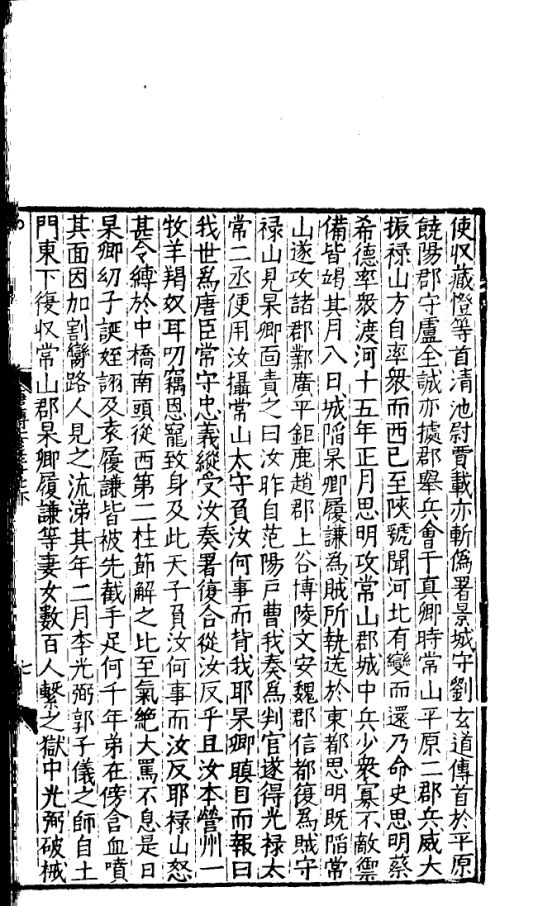 使収藏憕等首清池尉賈載亦斬偽署景城守劉玄道傳首於平原
饒陽郡守盧全誠亦㩀郡舉兵會于真卿時常山平原二郡兵威大
振禄山方自率衆而西已至陜虢聞河北有變而還乃命史思明蔡
希德率衆渡河十五年正月思明攻常山郡城中兵少衆寡不敵禦
備皆竭其月八日城陷杲卿履謙為賊所執送於東都思明既陷常
山遂攻諸郡鄴廣平鉅鹿趙郡上谷博陵文安魏郡信都復為賊守
禄山見杲卿面責之曰汝昨自范陽戸曹我奏為判官遂得光禄太
常二丞便用汝攝常山太守負汝何事而背我耶杲卿瞋目而報曰
我世為唐臣常守忠義縱受汝奏署復合從汝反乎且汝本營州一
牧羊羯奴耳叨竊恩寵致身及此天子負汝何事而汝反耶禄山怒
甚令縛於中橋南頭從西第二柱節解之比至氣絶大罵不息是日
杲卿幼子誕姪詡及袁履謙皆被先截手足何千年弟在傍含血噴
其面因加割臠路人見之流涕其年二月李光弼郭子儀之師自土
門東下復収常山郡杲卿履謙等妻女數百人繫之獄中光弼破械